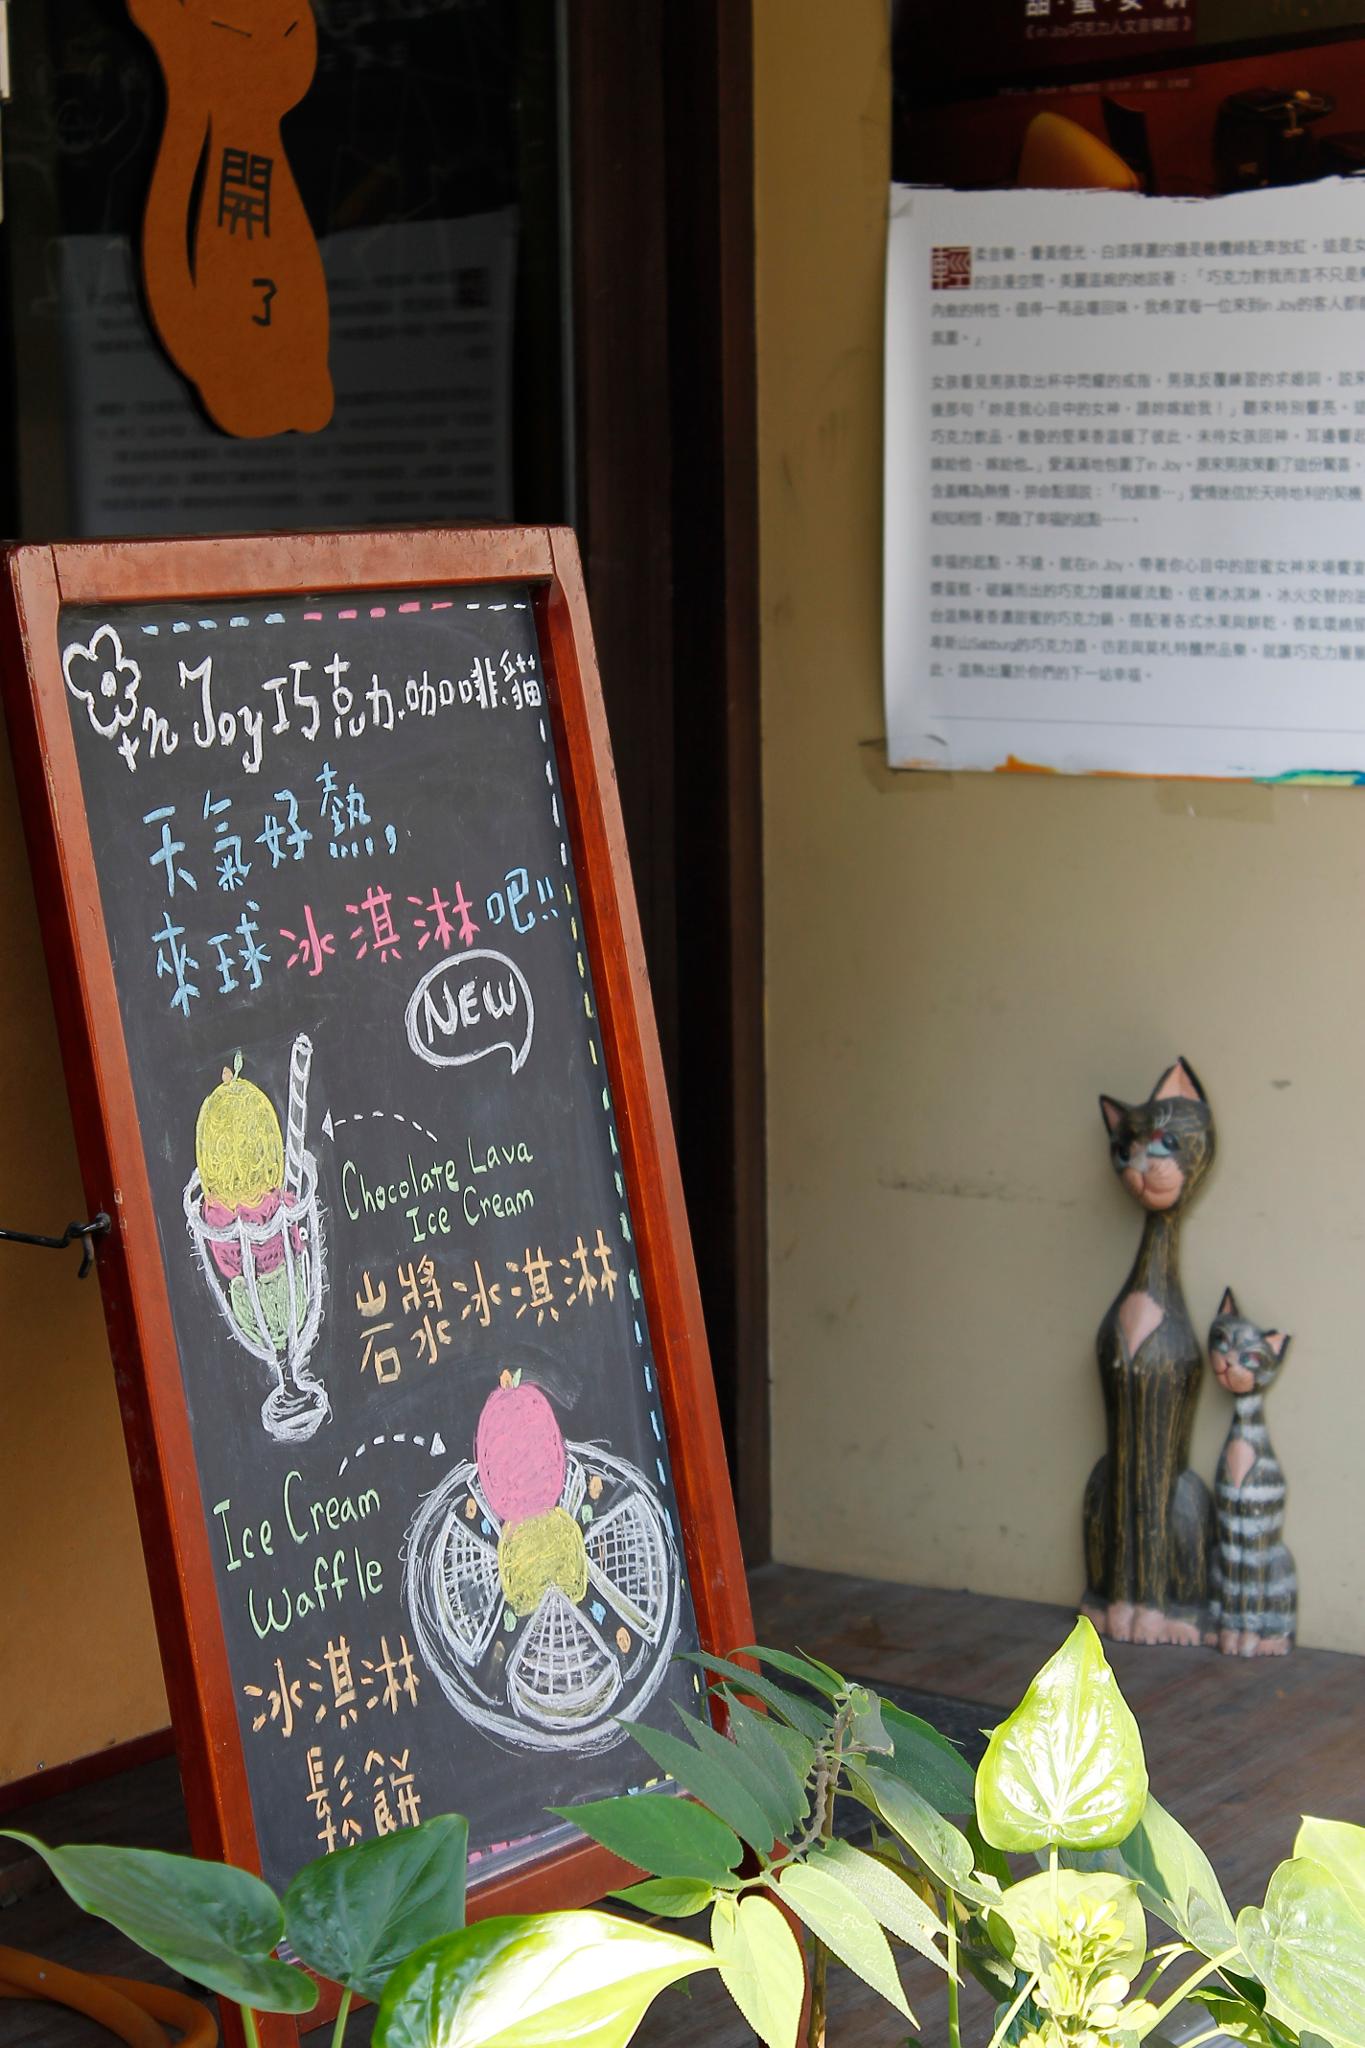 開
了
in Joy巧克力.咖啡.貓
天氣好熱,
來球冰淇淋吧!!
NEW
Chocolate Lava
Ice Cream
岩漿冰淇淋
Ice Cream
Waffle
冰淇淋
鬆餅
《in Joy巧克力人文音樂館》
輕柔音樂、暈黃燈光、白漆揮灑的牆是橄欖綠配奔放紅,這是女
的浪漫空間。美麗溫婉的她說著:「巧克力對我而言不只是
內斂的特性,值得一再品嚐回味。我希望每一位來到in Joy的客人都
氛圍。」
女孩看見男孩取出杯中閃耀的戒指,男孩反覆練習的求婚詞,說來
後那句「妳是我心目中的女神,請妳嫁給我!」聽來特別響亮。
巧克力飲品,散發的堅果香溫暖了彼此。未待女孩回神,耳邊響起
嫁給他、嫁給他…」愛滿滿地包圍了in Joy。原來男孩策劃了這份驚喜,
含羞轉為熱情,拼命點頭說:「我願意…」愛情迷信於天時地利的契機
相知相惜,開啟了幸福的起點……。
幸福的起點,不遠,就在in Joy。帶著你心目中的甜蜜女神來場饗宴
漿蛋糕,破繭而出的巧克力醬緩緩流動,佐著冰淇淋,冰火交替的
台溫熱著香濃甜蜜的巧克力鍋,搭配著各式水果與餅乾,香氣環繞
卑斯山Salzburg的巧克力酒,彷若與莫札特醺然品樂。就讓巧克力
此,溫熱出屬於你們的下一站幸福。